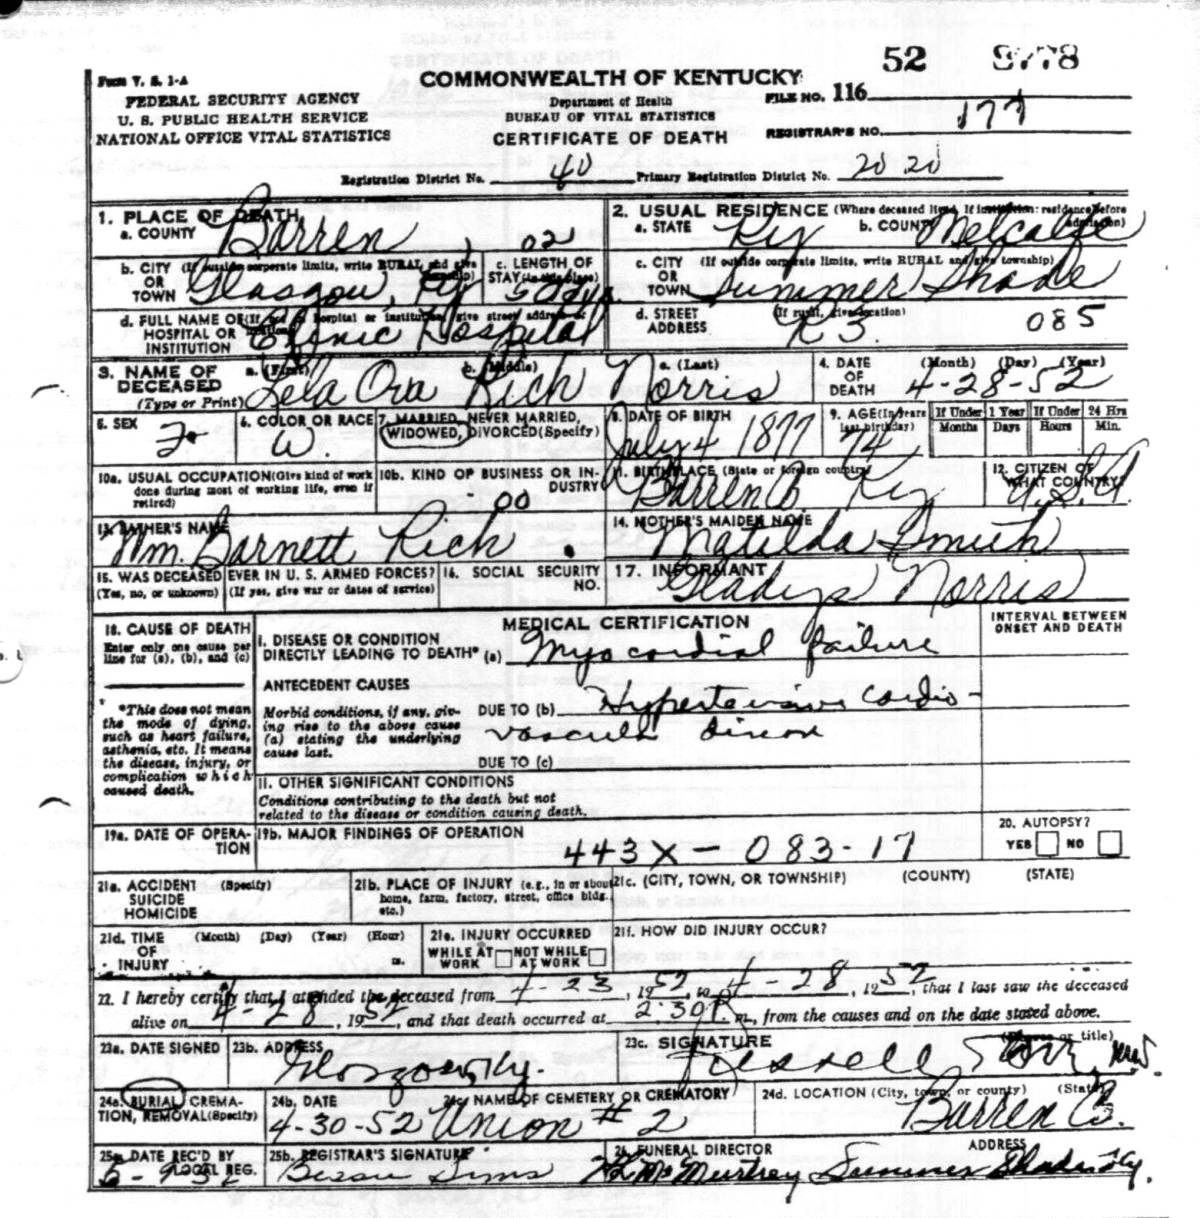 52 9778
Form V. S. 1-A
COMMONWEALTH OF KENTUCKY
FILE NO. 116
FEDERAL SECURITY AGENCY
Department of Health
U. S. PUBLIC HEALTH SERVICE
BUREAU OF VITAL STATISTICS
REGISTRAR'S NO. 177
NATIONAL OFFICE VITAL STATISTICS
CERTIFICATE OF DEATH
Registration District No. 40 Primary Registration District No. 20 20
1. PLACE OF DEATH
a. COUNTY Barren, 02
2. USUAL RESIDENCE (Where deceased lived. If institution: residence before admission)
a. STATE Ky b. COUNTY Metcalfe
b. CITY (If outside corporate limits, write RURAL and give township)
OR
TOWN Glasgow, Ky
c. LENGTH OF
STAY (in this place) 5 days
c. CITY (If outside corporate limits, write RURAL and give township)
OR
TOWN Summer Shade
d. FULL NAME OF (If not in hospital or institution, give street address or location)
HOSPITAL OR
INSTITUTION Clinic Hospital
d. STREET (If rural, give location)
ADDRESS R 3. 085
3. NAME OF DECEASED
(Type or Print)
a. (First) b. (Middle) c. (Last)
Lela Ora Rich Norris
4. DATE OF DEATH (Month) (Day) (Year)
4-28-52
5. SEX F
6. COLOR OR RACE W.
7. MARRIED, NEVER MARRIED, WIDOWED, DIVORCED (Specify)
8. DATE OF BIRTH July 4 1877
9. AGE (In years last birthday) 74
If Under 1 Year Months Days
If Under 24 Hrs Hours Min.
10a. USUAL OCCUPATION (Give kind of work done during most of working life, even if retired)
10b. KIND OF BUSINESS OR INDUSTRY 00
11. BIRTHPLACE (State or foreign country) Barren Co. Ky
12. CITIZEN OF WHAT COUNTRY? U.S.A.
13. FATHER'S NAME
Wm. Barnett Rich
14. MOTHER'S MAIDEN NAME
Matilda Smith
15. WAS DECEASED EVER IN U. S. ARMED FORCES?
(Yes, no, or unknown) (If yes, give war or dates of service)
16. SOCIAL SECURITY NO.
17. INFORMANT
Gladys Norris
18. CAUSE OF DEATH
Enter only one cause per line for (a), (b), and (c)
MEDICAL CERTIFICATION
INTERVAL BETWEEN ONSET AND DEATH
I. DISEASE OR CONDITION
DIRECTLY LEADING TO DEATH* (a) Myocardial failure
ANTECEDENT CAUSES
Morbid conditions, if any, giving rise to the above cause (a) stating the underlying cause last.
DUE TO (b) Hypertensive cardio-
vascula disease
DUE TO (c)
*This does not mean the mode of dying, such as heart failure, asthenia, etc. It means the disease, injury, or complication which caused death.
II. OTHER SIGNIFICANT CONDITIONS
Conditions contributing to the death but not
related to the disease or condition causing death.
19a. DATE OF OPERATION
19b. MAJOR FINDINGS OF OPERATION
443X - 083-17
20. AUTOPSY?
YES NO
21a. ACCIDENT (Specify)
SUICIDE
HOMICIDE
21b. PLACE OF INJURY (e.g., in or about home, farm, factory, street, office bldg. etc.)
21c. (CITY, TOWN, OR TOWNSHIP) (COUNTY) (STATE)
21d. TIME (Month) (Day) (Year) (Hour)
OF
INJURY m.
21e. INJURY OCCURRED
WHILE AT WORK NOT WHILE AT WORK
21f. HOW DID INJURY OCCUR?
22. I hereby certify that I attended the deceased from 4-23, 1952, to 4-28, 1952, that I last saw the deceased
alive on 4-28, 1952, and that death occurred at 2:30 P. m., from the causes and on the date stated above.
23a. DATE SIGNED
23b. ADDRESS
Glasgow, Ky.
23c. SIGNATURE (Degree or title)
24a. BURIAL, CREMATION, REMOVAL (Specify)
24b. DATE
4-30-52
24c. NAME OF CEMETERY OR CREMATORY
Union # 2
24d. LOCATION (City, town, or county) (State)
Barren Co.
25a. DATE REC'D BY LOCAL REG.
25b. REGISTRAR'S SIGNATURE
Bessie Sims
26. FUNERAL DIRECTOR ADDRESS
McMurtrey Summer Shade, Ky.